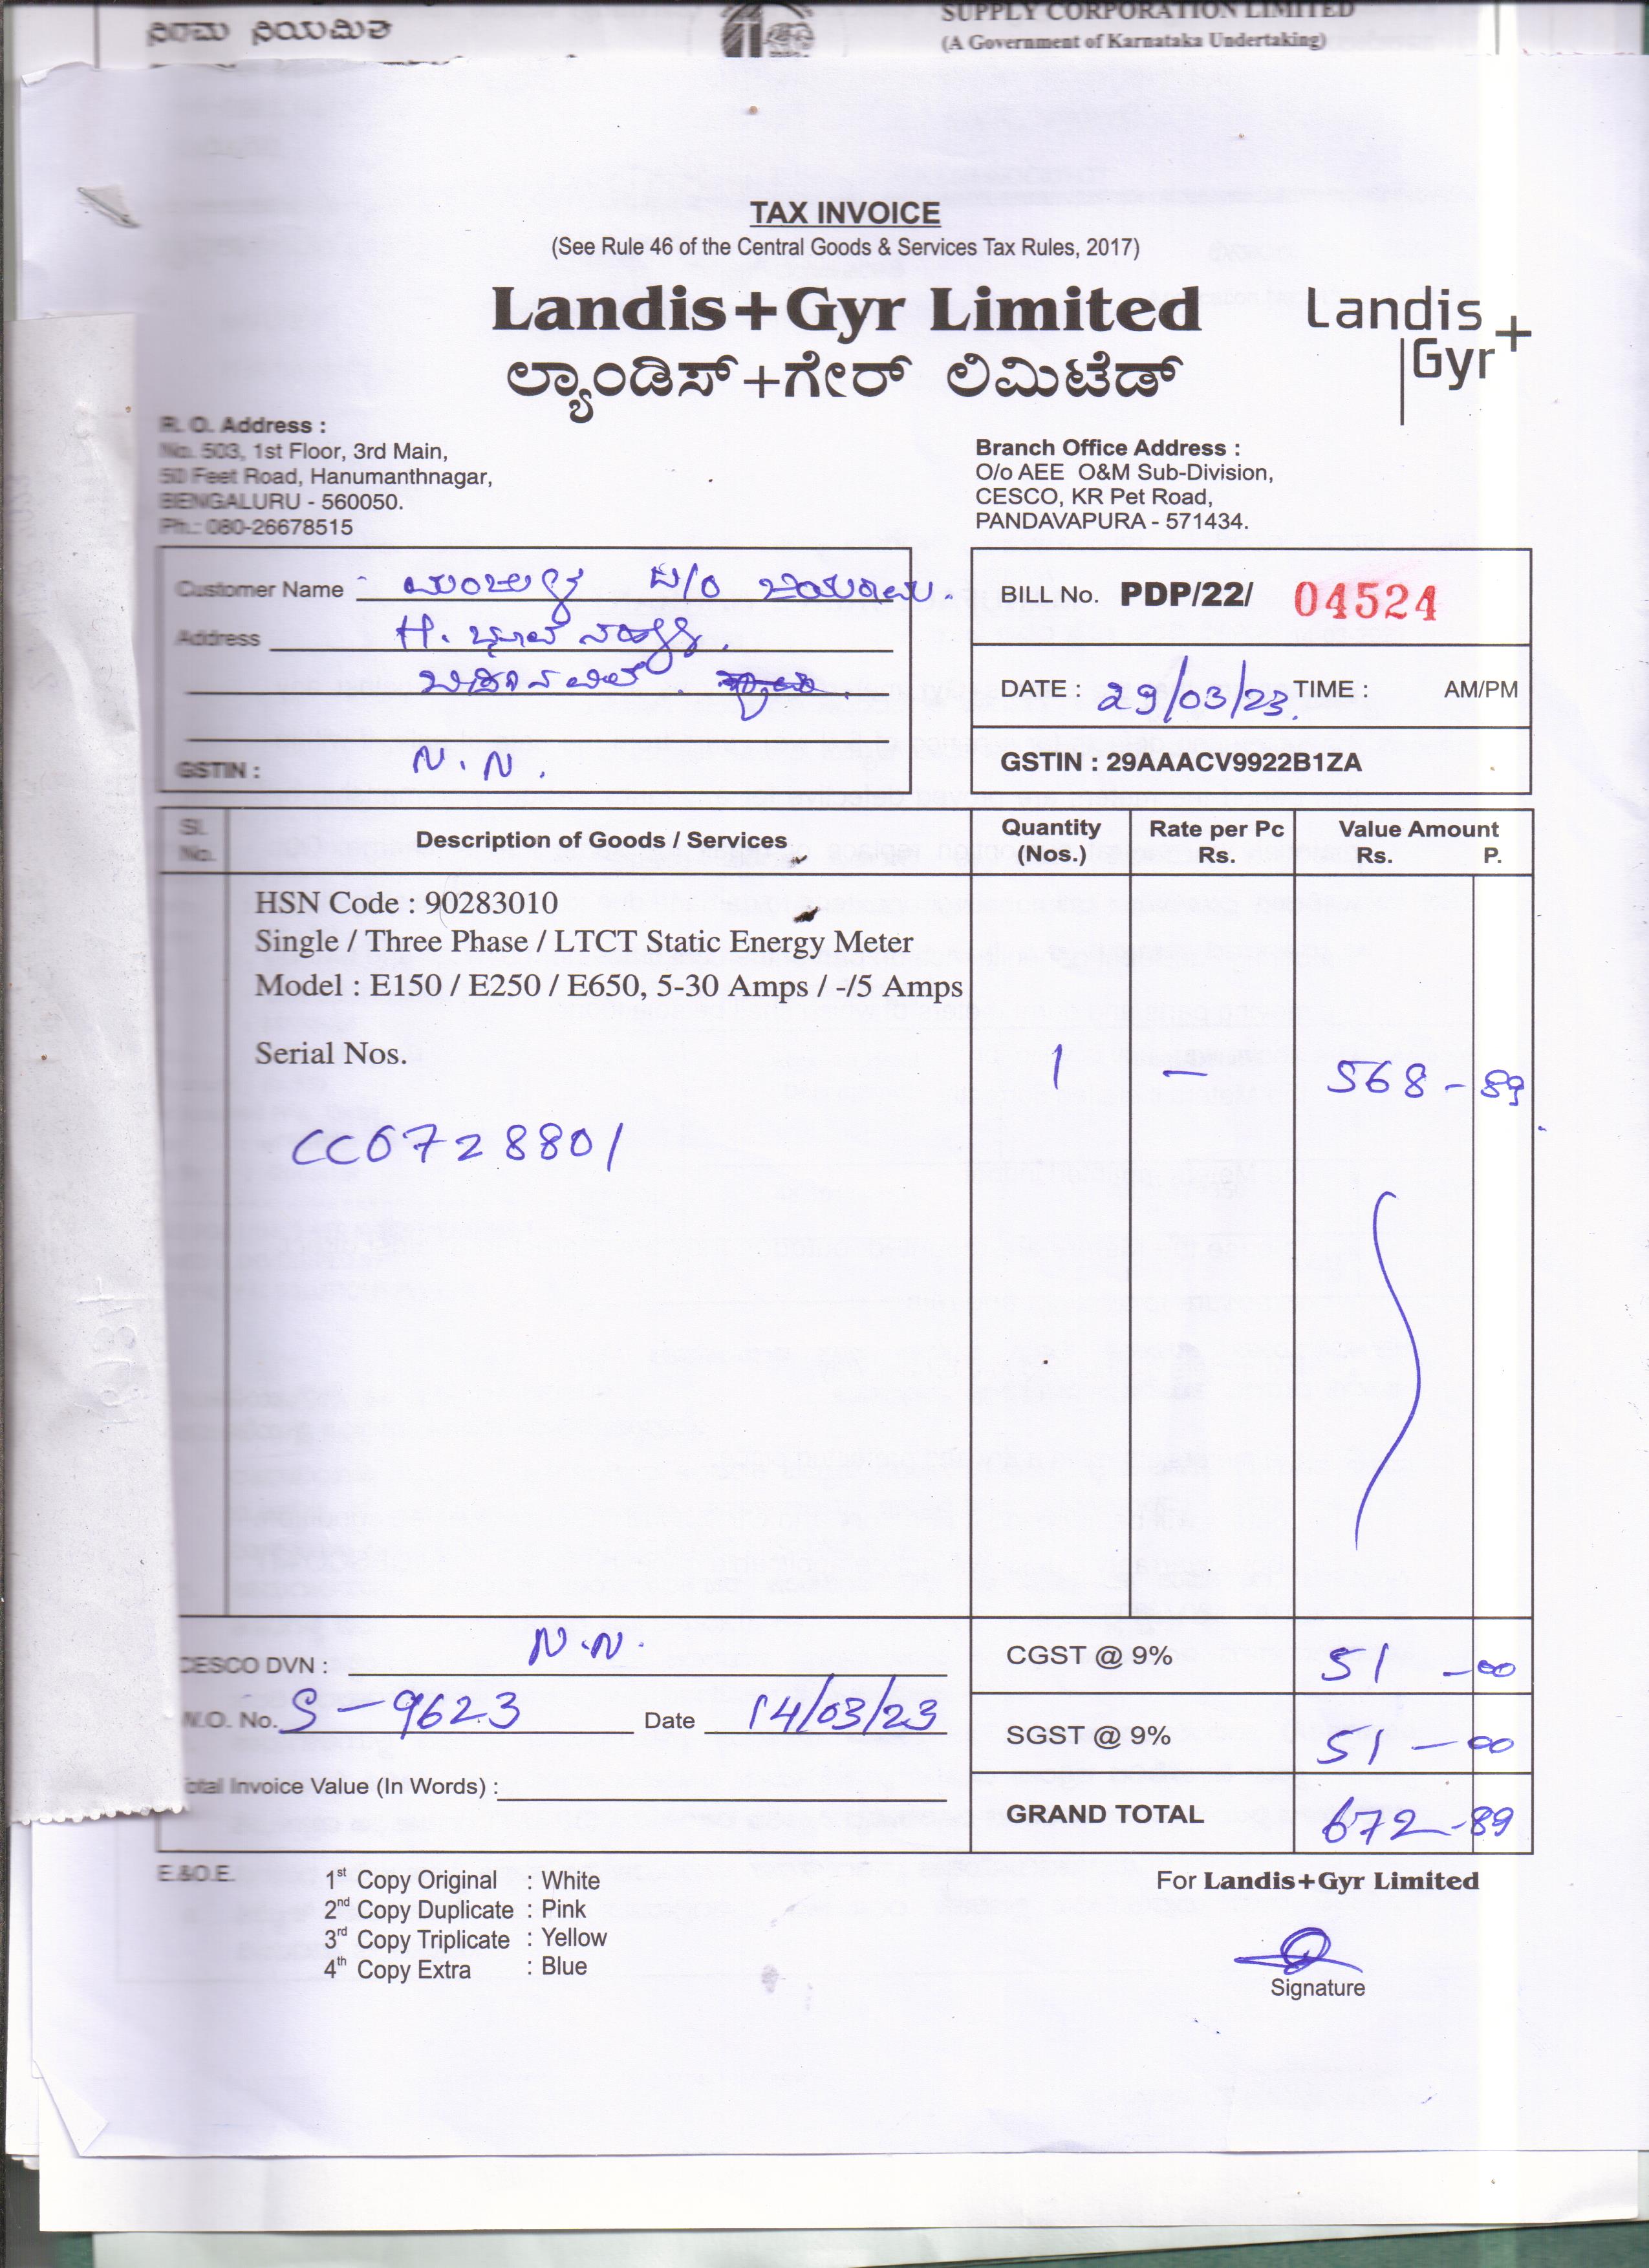 ನಿಗಮ ನಿಯಮಿತ
SUPPLY CORPORATION LIMITED
(A Government of Karnataka Undertaking)
TAX INVOICE
(See Rule 46 of the Central Goods & Services Tax Rules, 2017)
Landis+Gyr Limited
Landis
Gyr+
ಲ್ಯಾಂಡಿಸ್+ಗೇರ್ ಲಿಮಿಟೆಡ್
R. O. Address :
No. 503, 1st Floor, 3rd Main,
50 Feet Road, Hanumanthnagar,
BENGALURU - 560050.
Ph.: 080-26678515
Branch Office Address :
O/o AEE O&M Sub-Division,
CESCO, KR Pet Road,
PANDAVAPURA - 571434.
Customer Name
Address H.
GSTIN : N.N.
BILL No. PDP/22/ 04524
DATE : 29/03/23. TIME : AM/PM
GSTIN : 29AAACV9922B1ZA
Sl. No. Description of Goods / Services Quantity (Nos.) Rate per Pc Rs. Value Amount Rs. P.
HSN Code : 90283010
Single / Three Phase / LTCT Static Energy Meter
Model : E150 / E250 / E650, 5-30 Amps / -/5 Amps
Serial Nos. 1 — 568-89
CC0728801
CESCO DVN : N.N.
W.O. No. S-9623 Date 14/03/23
Total Invoice Value (In Words) :
CGST @ 9% 51-00
SGST @ 9% 51-00
GRAND TOTAL 672-89
E.&O.E.
1st Copy Original : White
2nd Copy Duplicate : Pink
3rd Copy Triplicate : Yellow
4th Copy Extra : Blue
For Landis+Gyr Limited
Signature